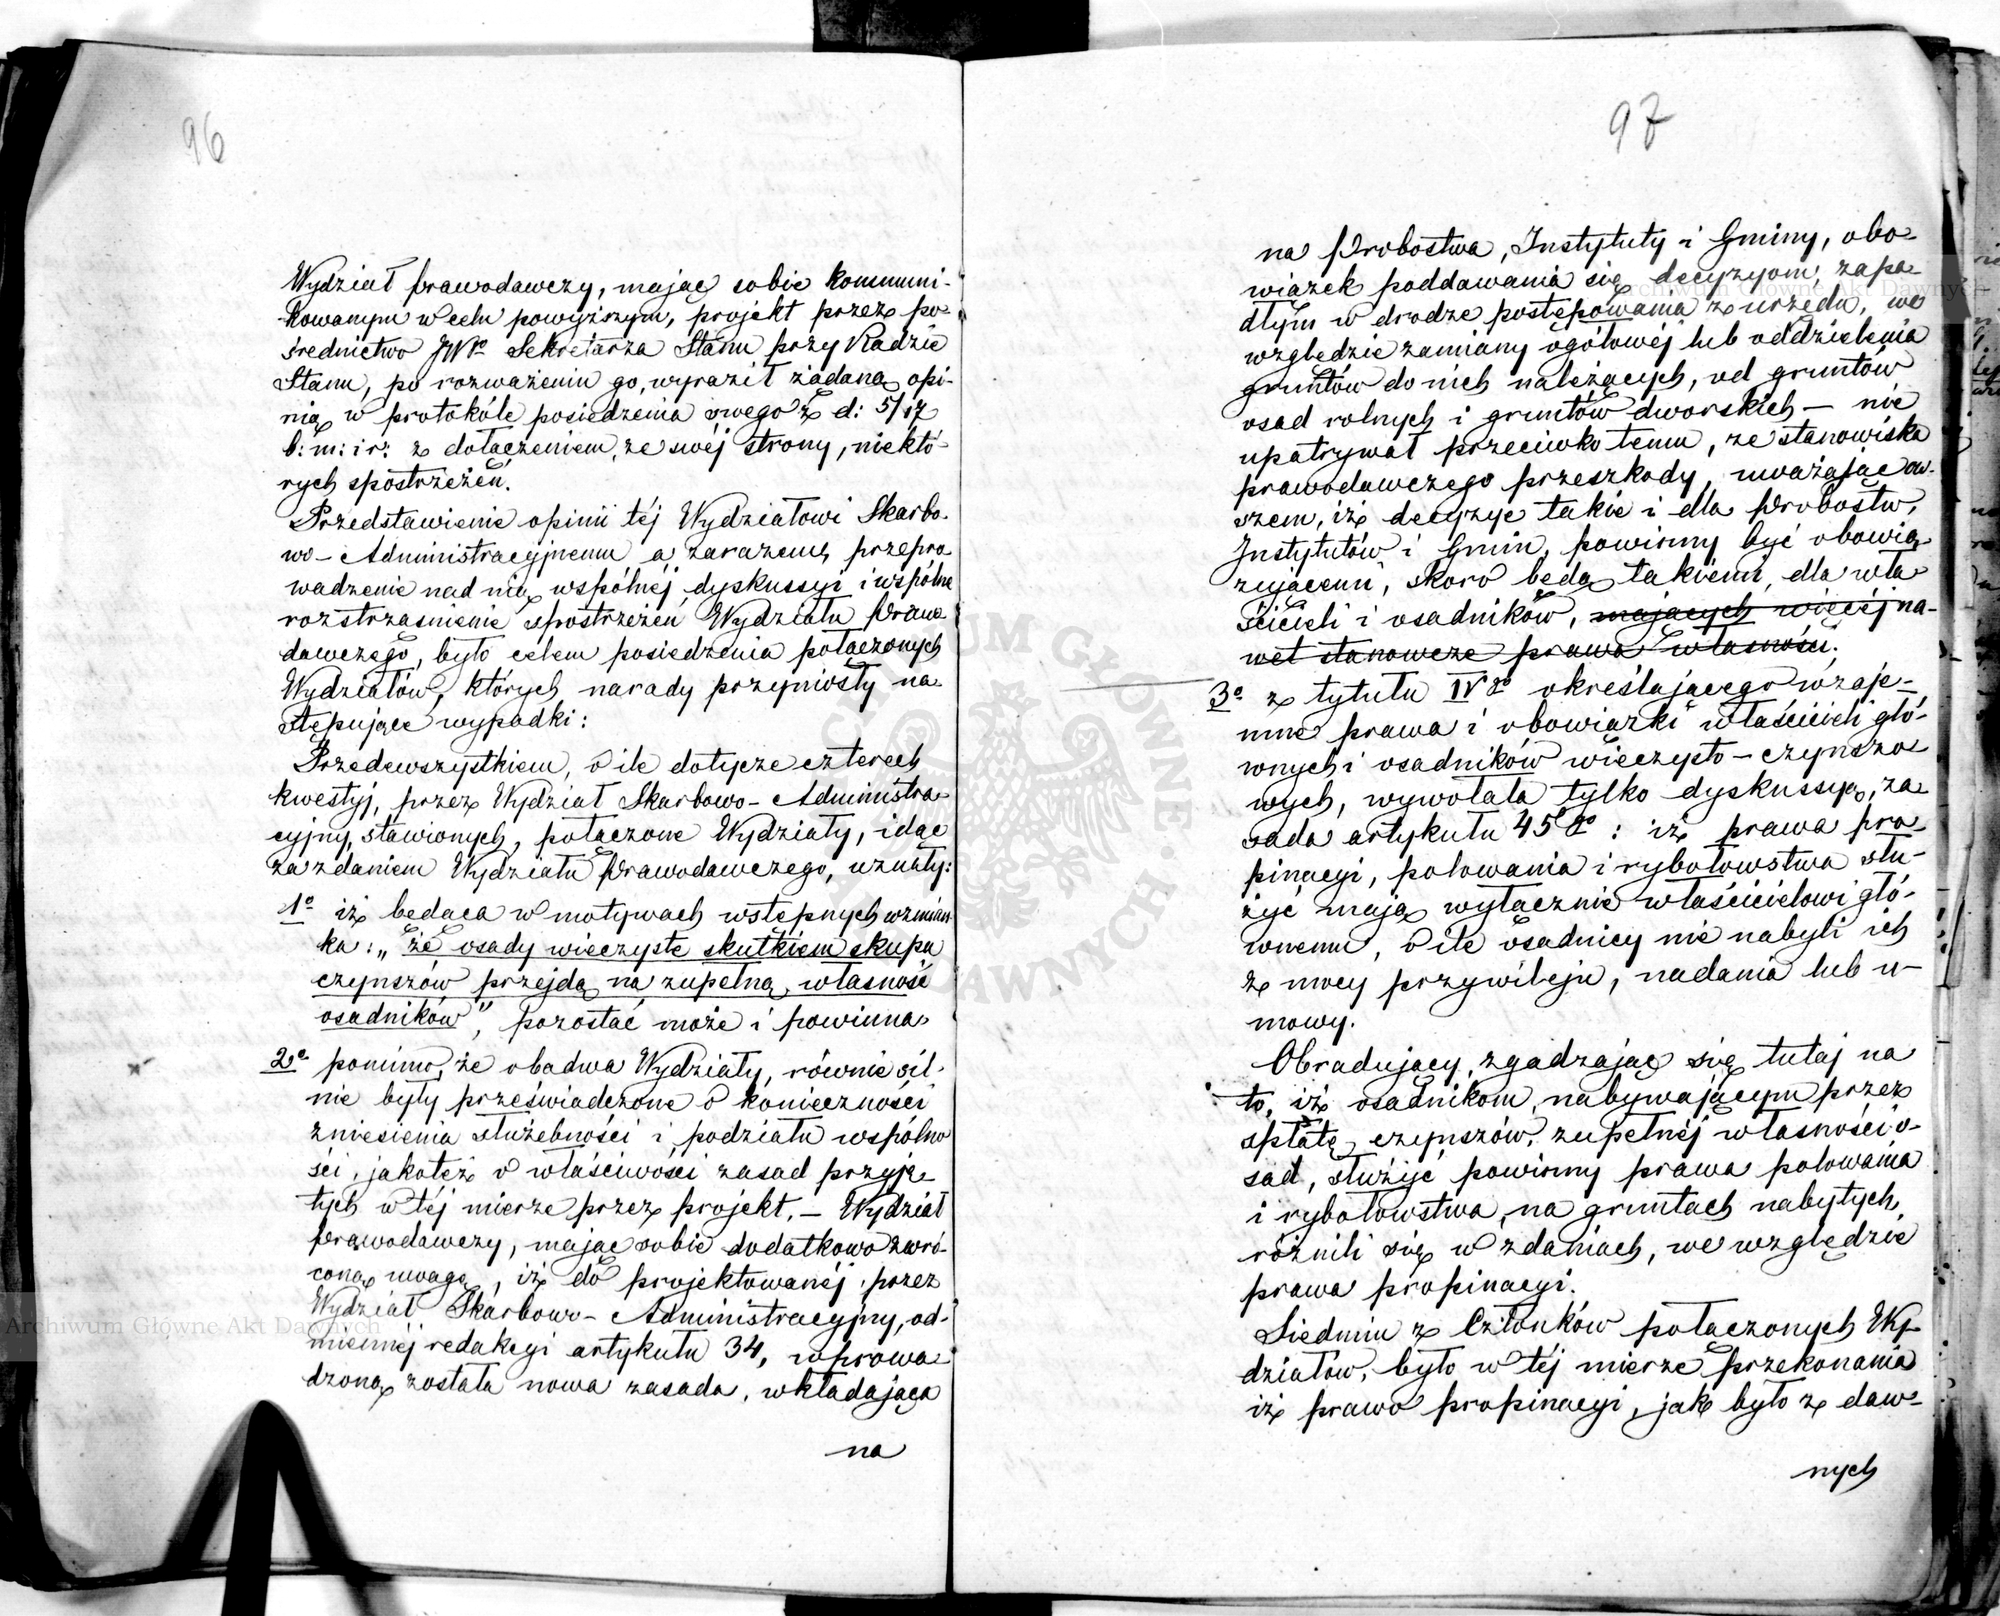 96
Wydział Prawodawczy, mając sobie kommuni-
kowanym w celu powyższym, projekt przez po-
średnictwo JWo Sekretarza Stanu przy Radzie
Stanu, po rozważeniu go, wyraził żądaną opi-
nią w protokóle posiedzenia swego z d: 5/17
b: m: i r: z dołączeniem, ze swéj strony, niektó-
rych spostrzeżeń.
Przedstawienie opinii téj Wydziałowi Skarbo-
wo-Administracyjnemu a zarazem, przepro-
wadzenie nad nią wspólnéj dyskussyi i wspólne
rozstrząśnienie spostrzeżeń Wydziału Prawo-
dawczego, było celem posiedzenia połączonych
Wydziałów, których narady przyniosły na-
stępujące wypadki:
Przedewszystkiem, o ile dotycze czterech
kwestyj, przez Wydział Skarbowo-Administra-
cyjny, stawionych, połączone Wydziały, idąc
za zdaniem Wydziału Prawodawczego, uznały:
1o iż będąca w motywach wstępnych wzmian-
ka: „że osady wieczyste skutkiem skupu
czynszów przejdą na zupełną własność
osadników", pozostać może i powinna.
2o pomimo, że obadwa Wydziały, równie sil-
nie były przeświadczone o konieczności
zniesienia służebności i podziału wspólno-
ści, jakoteż o właściwości zasad przyję-
tych w téj mierze przez projekt. — Wydział
Prawodawczy, mając sobie dodatkowo zwró-
coną uwagę, iż do projektowanéj przez
Wydział Skarbowo-Administracyjny, od-
miennéj redakcyi artykułu 34, wprowa-
dzoną została nowa zasada, wkładająca
na
97
na Probostwa, Instytuty i Gminy, obo-
wiązek poddawania się decyzyom, zapa-
dłym w drodze postępowania z urzędu, we
względzie zamiany ogółowéj lub oddzielenia
gruntów do nich należących, od gruntów
osad rolnych i gruntów dworskich — nie
upatrywał przeciwko temu, ze stanowiska
prawodawczego przeszkody, uważając ow-
szem, iż decyzye takie i dla Probostw,
Instytutów i Gmin, powinny być obowią-
zującemi, skoro będą takiemi, dla wła-
ścicieli i osadników, mających więcéj na-
wet stanowcze prawa własności.
3o z tytułu IVgo określającego wzaje-
mne prawa i obowiązki właścicieli głó-
wnych i osadników wieczysto-czynszo-
wych, wywołała tylko dyskussyą, za-
sada artykułu 45go: iż prawa pro-
pinacyi, polowania i rybołowstwa słu-
żyć mają wyłącznie właścicielowi głó-
wnemu, o ile osadnicy nie nabyli ich
z mocy przywileju, nadania lub u-
mowy.
Obradujący, zgadzając się tutaj na
to, iż osadnikom, nabywającym przez
spłatę czynszów, zupełnéj własności o-
sad, służyć powinny prawa polowania
i rybołowstwa, na gruntach nabytych,
różnili się w zdaniach, we względzie
prawa propinacyi.
Siedmiu z Członków połączonych Wy-
działów, było w téj mierze przekonania
iż prawo propinacyi, jak było z daw-
nych
Archiwum Główne Akt Dawnych
Archiwum Główne Akt Dawnych
ARCHIWUM GŁÓWNE AKT DAWNYCH